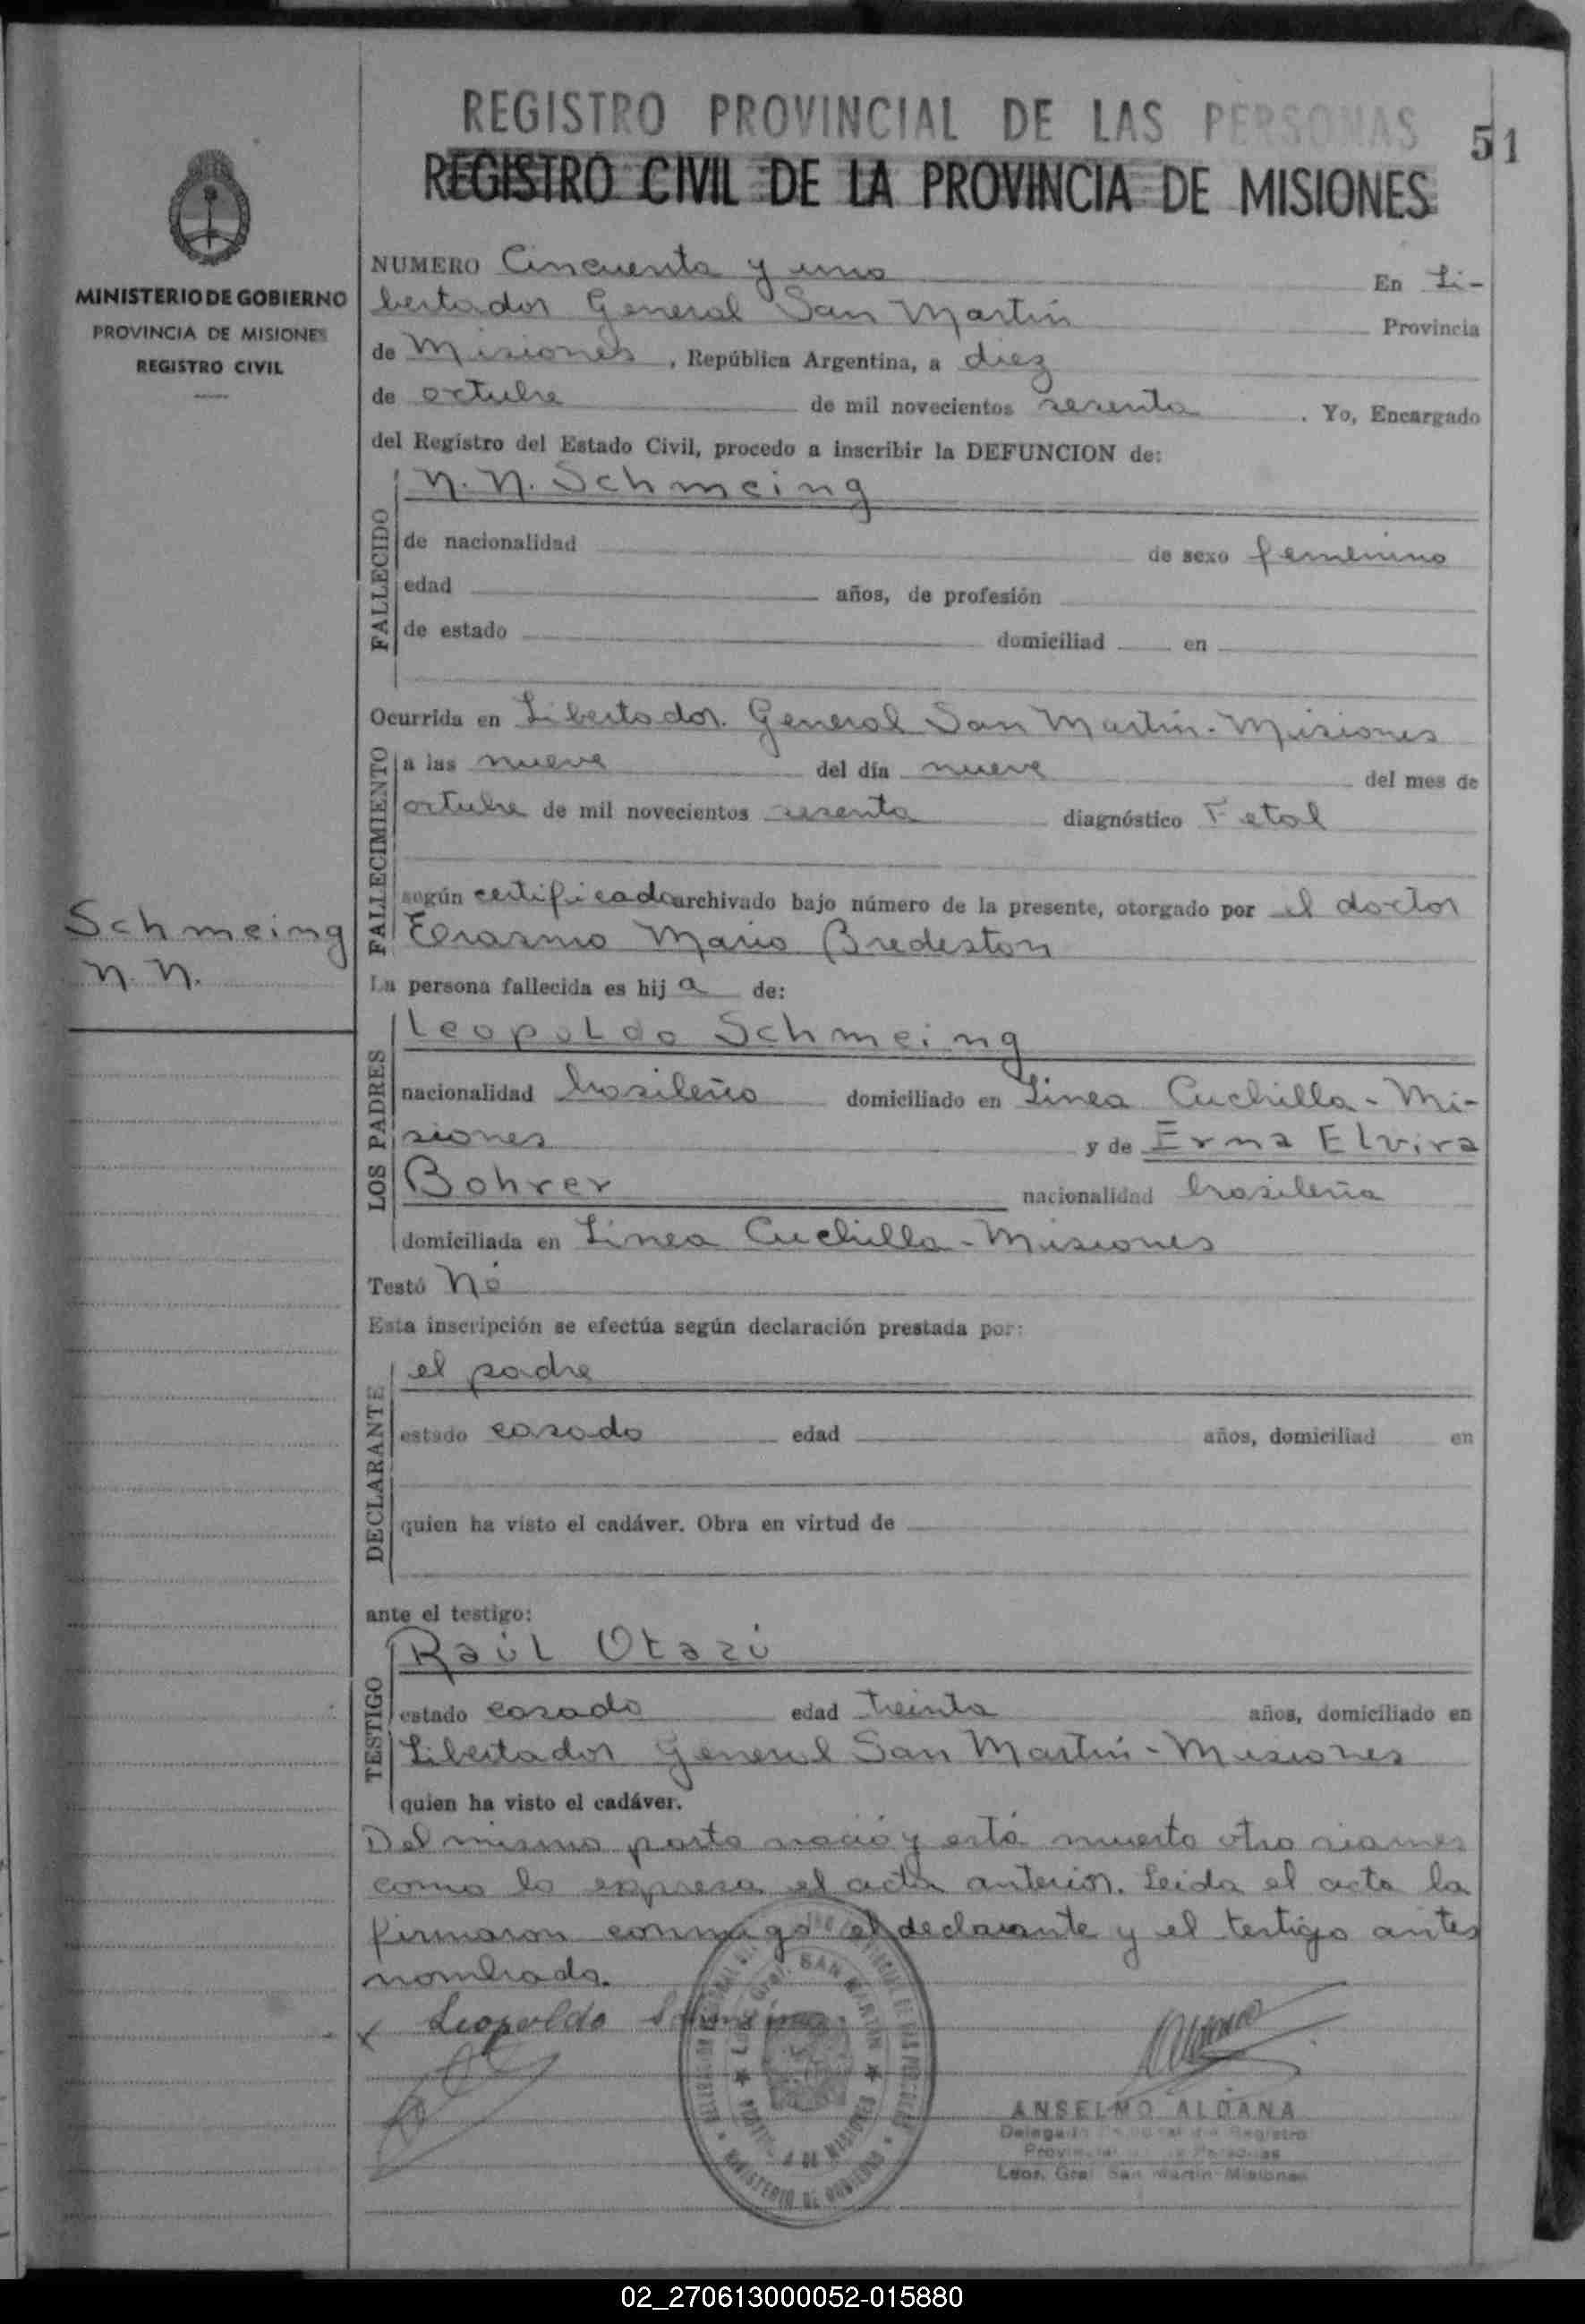 REGISTRO PROVINCIAL DE LAS PERSONAS
51
REGISTRO CIVIL DE LA PROVINCIA DE MISIONES
MINISTERIO DE GOBIERNO
PROVINCIA DE MISIONES
REGISTRO CIVIL
NUMERO Cincuenta y uno En Li-
bertador General San Martín Provincia
de Misiones, República Argentina, a diez
de octubre de mil novecientos sesenta. Yo, Encargado
del Registro del Estado Civil, procedo a inscribir la DEFUNCION de:
FALLECIDO
N. N. Schmeing
de nacionalidad de sexo femenino
edad años, de profesión
de estado domiciliad en
Ocurrida en Libertador General San Martín - Misiones
FALLECIMIENTO
a las nueve del día nueve del mes de
octubre de mil novecientos sesenta diagnóstico Fetal
según certificado archivado bajo número de la presente, otorgado por el doctor
Erasmo Mario Bredeston
Schmeing
N. N.
La persona fallecida es hija de:
LOS PADRES
Leopoldo Schmeing
nacionalidad brasileño domiciliado en Línea Cuchilla - Mi-
siones y de Erma Elvira
Bohrer nacionalidad brasileña
domiciliada en Línea Cuchilla - Misiones
Testó No
Esta inscripción se efectúa según declaración prestada por:
DECLARANTE
el padre
estado casado edad años, domiciliad en
quien ha visto el cadáver. Obra en virtud de
ante el testigo:
TESTIGO
Raúl Otazú
estado casado edad treinta años, domiciliado en
Libertador General San Martín - Misiones
quien ha visto el cadáver.
Del mismo parto nació y está muerto otro siames
como lo expresa el acta anterior. Leida el acta la
firmaron conmigo el declarante y el testigo antes
nombrado.
x Leopoldo Schmeing
Gral. SAN MARTIN
MINISTERIO DE GOBIERNO
ANSELMO ALDANA
Delegado Registro
Provincial Personas
Ldor. Gral San Martin Misiones
02_270613000052-015880